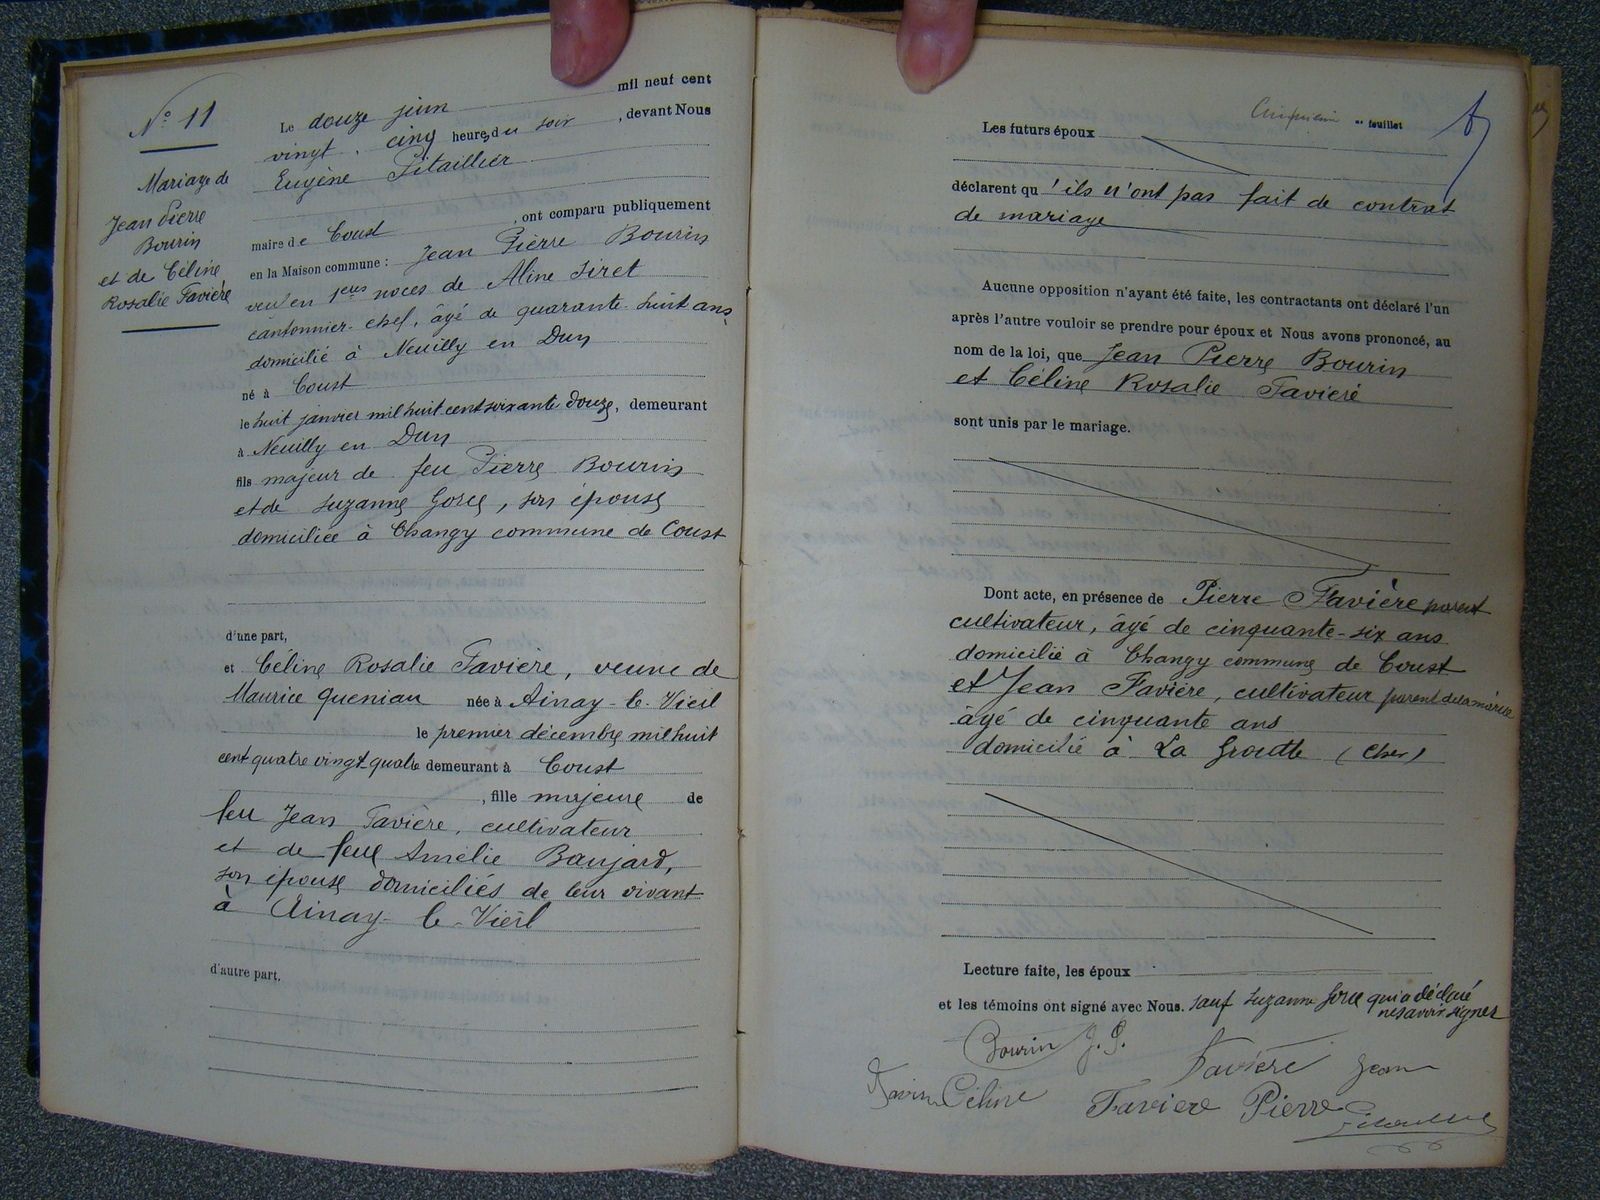 N° 11
Mariage de
Jean Pierre
Bourin
et de Céline
Rosalie Favière
Le douze juin mil neuf cent
vingt, cinq heures du soir, devant Nous
Eugène Pitaillier
maire de Coust, ont comparu publiquement
en la Maison commune : Jean Pierre Bourin
veuf en 1eres noces de Aline Siret
cantonnier-chef, âgé de quarante-huit ans,
domicilié à Neuilly en Dun
né à Coust
le huit janvier mil huit cent soixante douze, demeurant
à Neuilly en Dun
fils majeur de feu Pierre Bourin
et de Suzanne Gorce, son épouse
domiciliée à Changy commune de Coust
d'une part,
et Céline Rosalie Favière, veuve de
Maurice Queniau née à Ainay-le-Vieil
le premier décembre mil huit
cent quatre vingt quatre demeurant à Coust
, fille majeure de
feu Jean Favière, cultivateur
et de feue Amélie Baujard,
son épouse domiciliés de leur vivant
à Ainay-le-Vieil
d'autre part.
feuillet
Les futurs époux
déclarent qu'ils n'ont pas fait de contrat
de mariage
Aucune opposition n'ayant été faite, les contractants ont déclaré l'un
après l'autre vouloir se prendre pour époux et Nous avons prononcé, au
nom de la loi, que Jean Pierre Bourin
et Céline Rosalie Favière
sont unis par le mariage.
Dont acte, en présence de Pierre Favière parent
cultivateur, âgé de cinquante-six ans
domicilié à Changy commune de Coust
et Jean Favière, cultivateur parent de la mariée
âgé de cinquante ans
domicilié à La Groutte (Cher)
Lecture faite, les époux
et les témoins ont signé avec Nous. sauf Suzanne Gorce qui a déclaré
ne savoir signer
Bourin J. P.
Favière Jean
Céline
Faviere Pierre